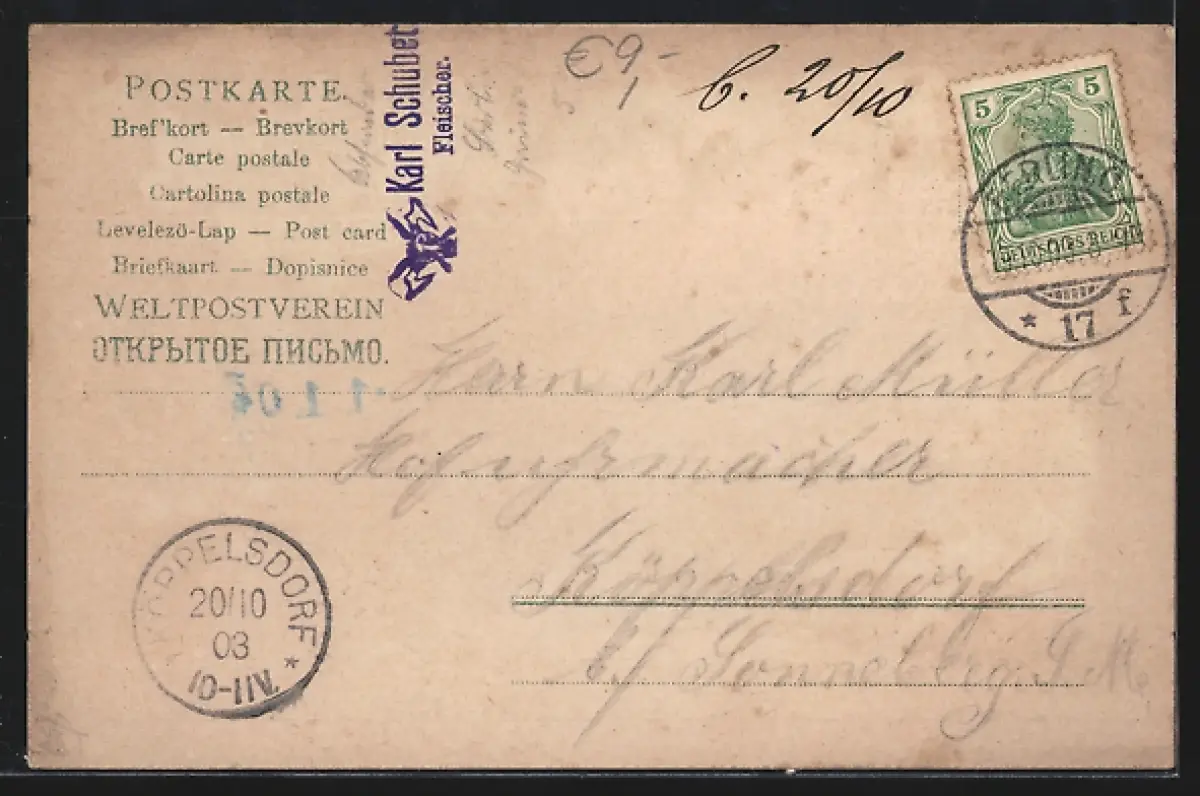 POSTKARTE.
Bref'kort — Brevkort
Carte postale
Cartolina postale
Levelezö-Lap — Post card
Briefkaart — Dopisnice
WELTPOSTVEREIN
ОТКРЫТОЕ ПИСЬМО.
Karl Schubert
Fleischer.
€9,-
b. 20/10
5 5
DEUTSCHES REICH
* 17 f
Herrn Karl Müller
Hofuhrmacher
Köppelsdorf
b/ Sonneberg S. M.
KÖPPELSDORF *
20/10
03
10-11V.